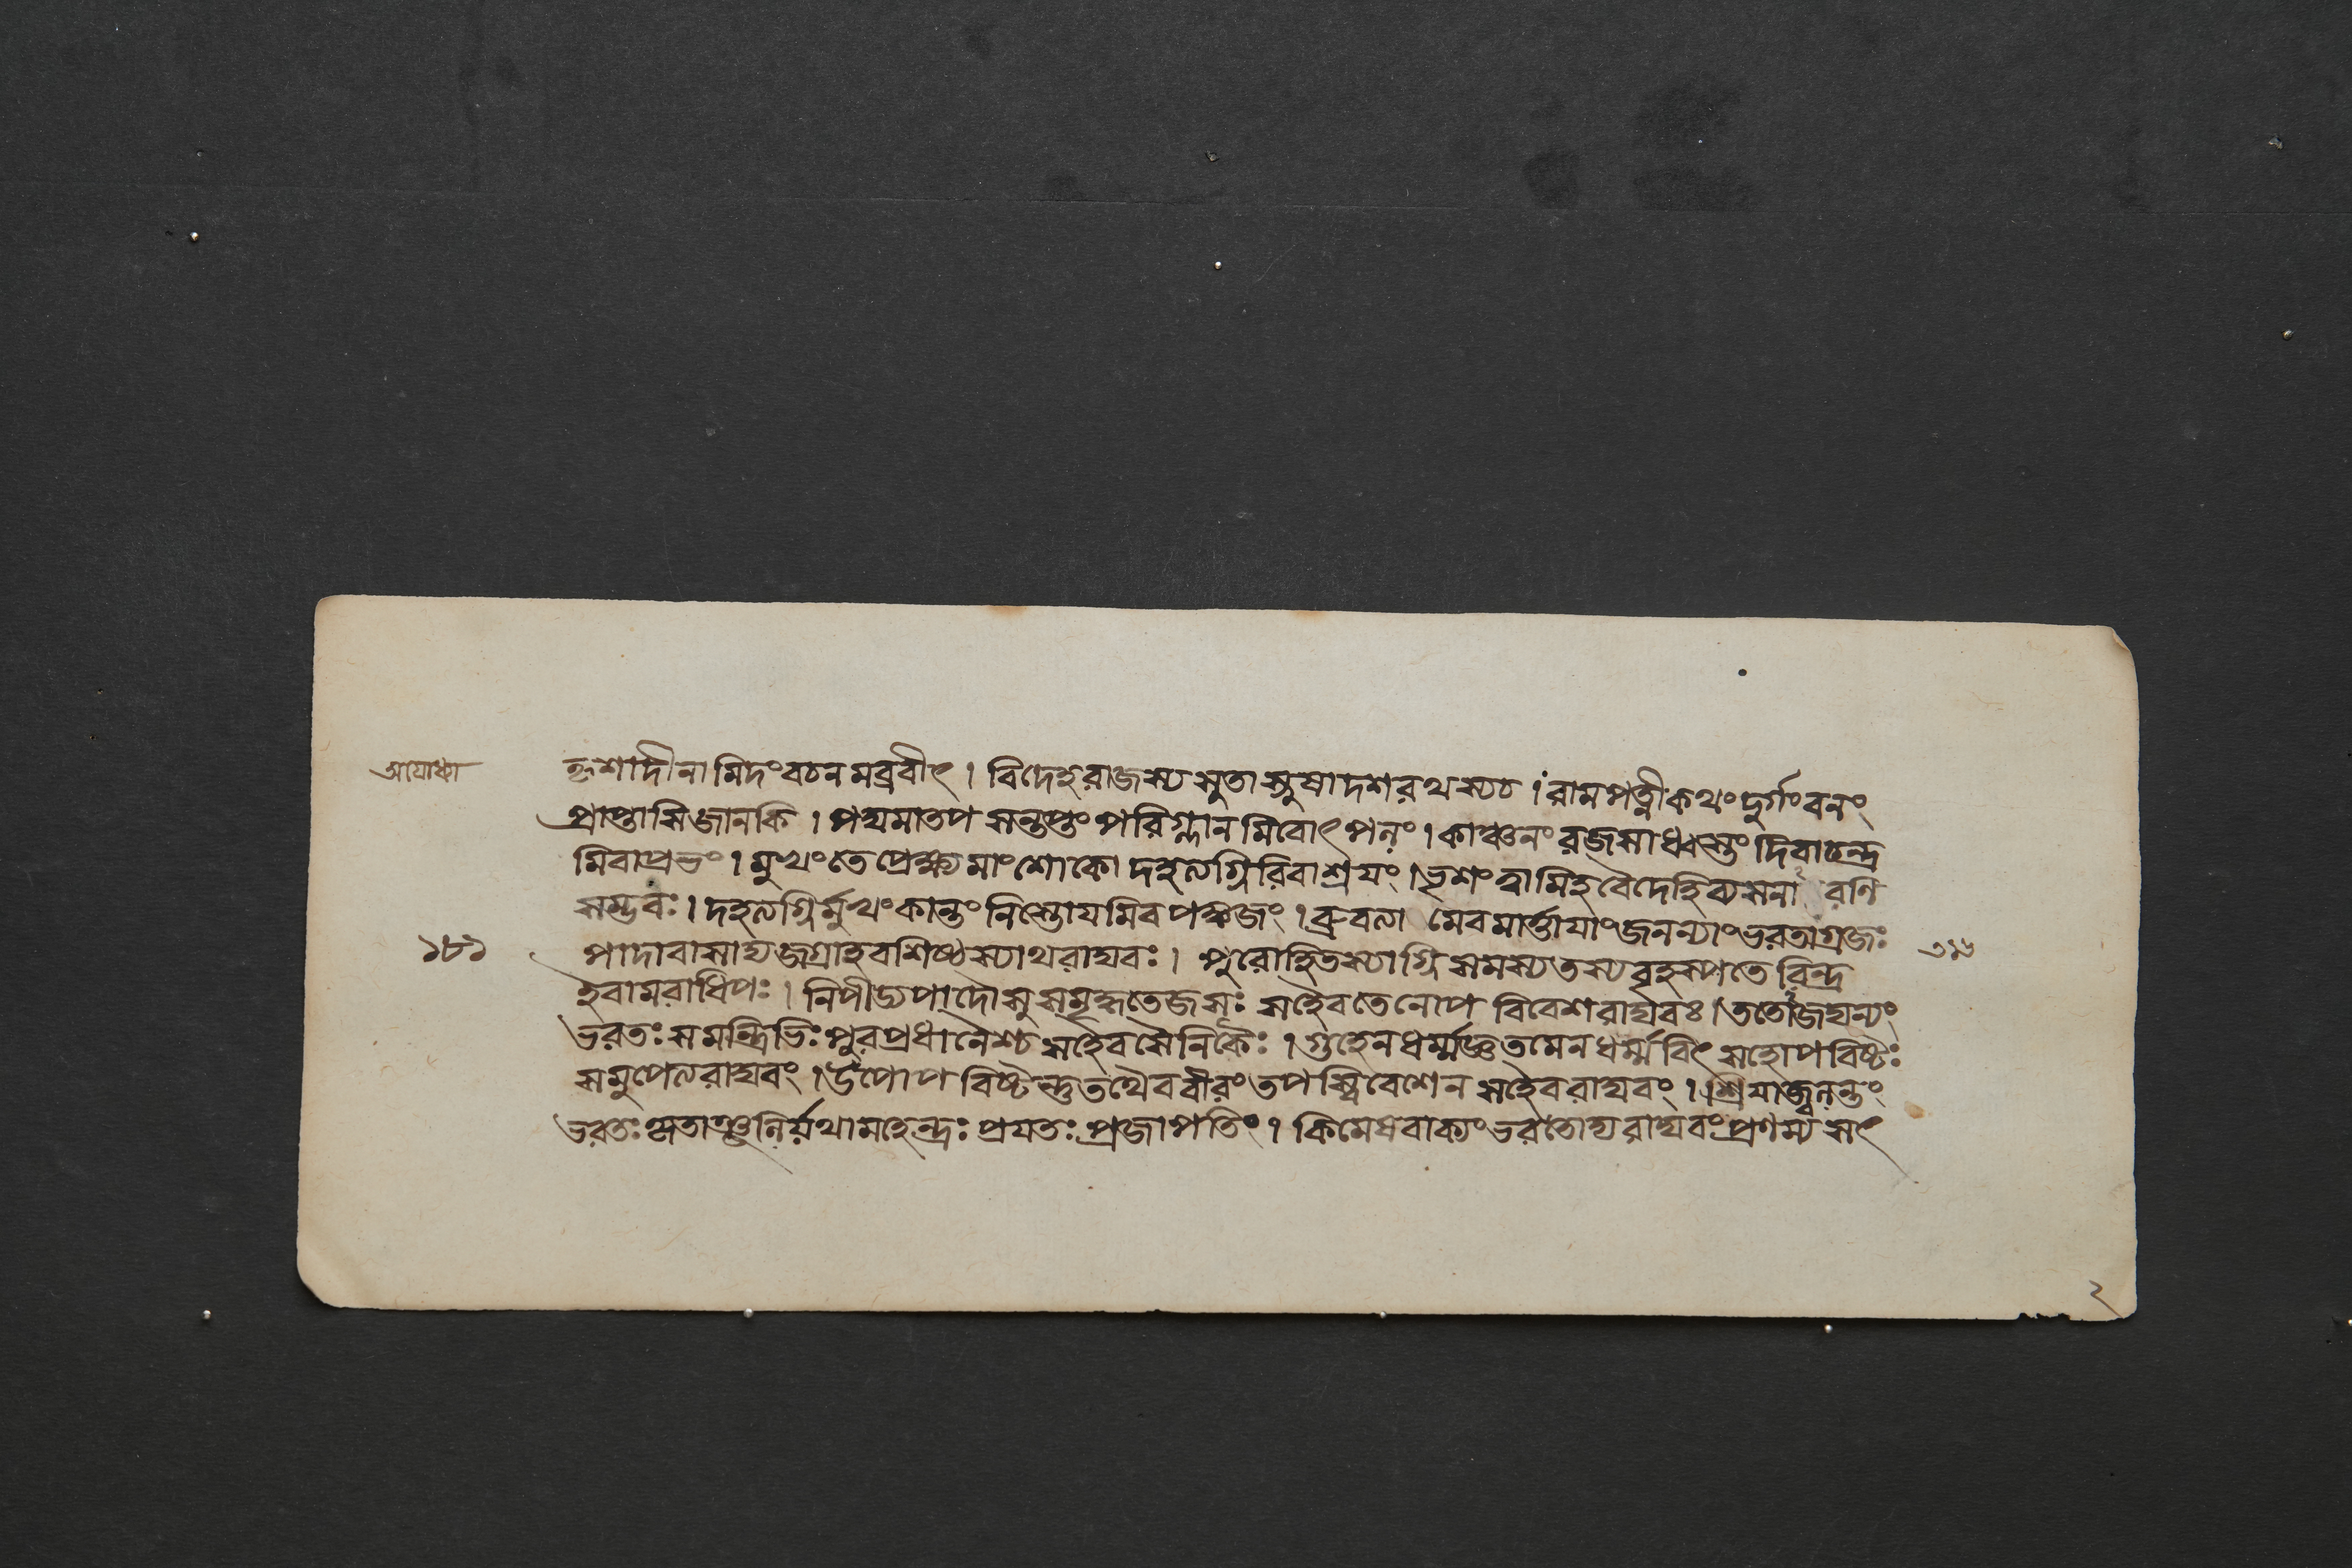 অযোধ্যা
কৃশাদীনামিদং বচনমব্রবীৎ । বিদেহরাজস্য সুতা স্নুষা দশরথস্য চ । রামপত্নী কথং দুর্গং বনং
প্রাপ্তাসি জানকি । পদ্মমাতপসন্তপ্তং পরিম্লানমিবোৎপলং । কাঞ্চনং রজসা ধ্বস্তং দিবাচন্দ্র
মিবাপ্রভং । মুখং তে প্রেক্ষ্য মাং শোকো দহত্যগ্নিরিবাশ্রয়ং । ভৃশং ত্বামিহ বৈদেহি ব্যসনারণি
সম্ভবঃ । দহত্যগ্নির্মুখং কান্তং নিস্তোয়মিব পঙ্কজং । ব্রুবত্যামেবমার্ত্তায়াং জনন্যাং ভরতাগ্রজঃ
১৮১
পাদাবাসাদ্য জগ্রাহ বশিষ্ঠস্যাথ রাঘবঃ । পুরোহিতস্যাগ্নিসমস্য তস্য বৃহস্পতেরিন্দ্র
ইবামরাধিপঃ । নিপীড্য পাদৌ সুসমৃদ্ধতেজসঃ সহৈব তেনোপবিবেশ রাঘবঃ । ততো জঘন্যং
ভরতঃ সমন্ত্রিভিঃ পুরপ্রধানৈশ্চ সহৈব সৈনিকৈঃ । গুহেন ধর্ম্মজ্ঞতমেন ধর্ম্মবিৎ সহোপবিষ্টঃ
সমুপেত্য রাঘবং । উপোপবিষ্টস্তু তথৈব বীরং তপস্বিবেশেন সহৈব রাঘবং । শ্রিয়া জ্বলন্তং
ভরতঃ কৃতাঞ্জলির্যথা মহেন্দ্রঃ প্রযতঃ প্রজাপতিং । কিমেষ বাক্যং ভরতোদ্য রাঘবং প্রণম্য সৎ
২